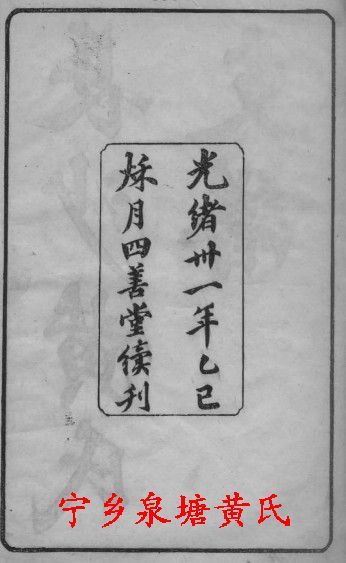 光緒卅一年乙巳
秌月四善堂續刋
宁乡泉塘黄氏